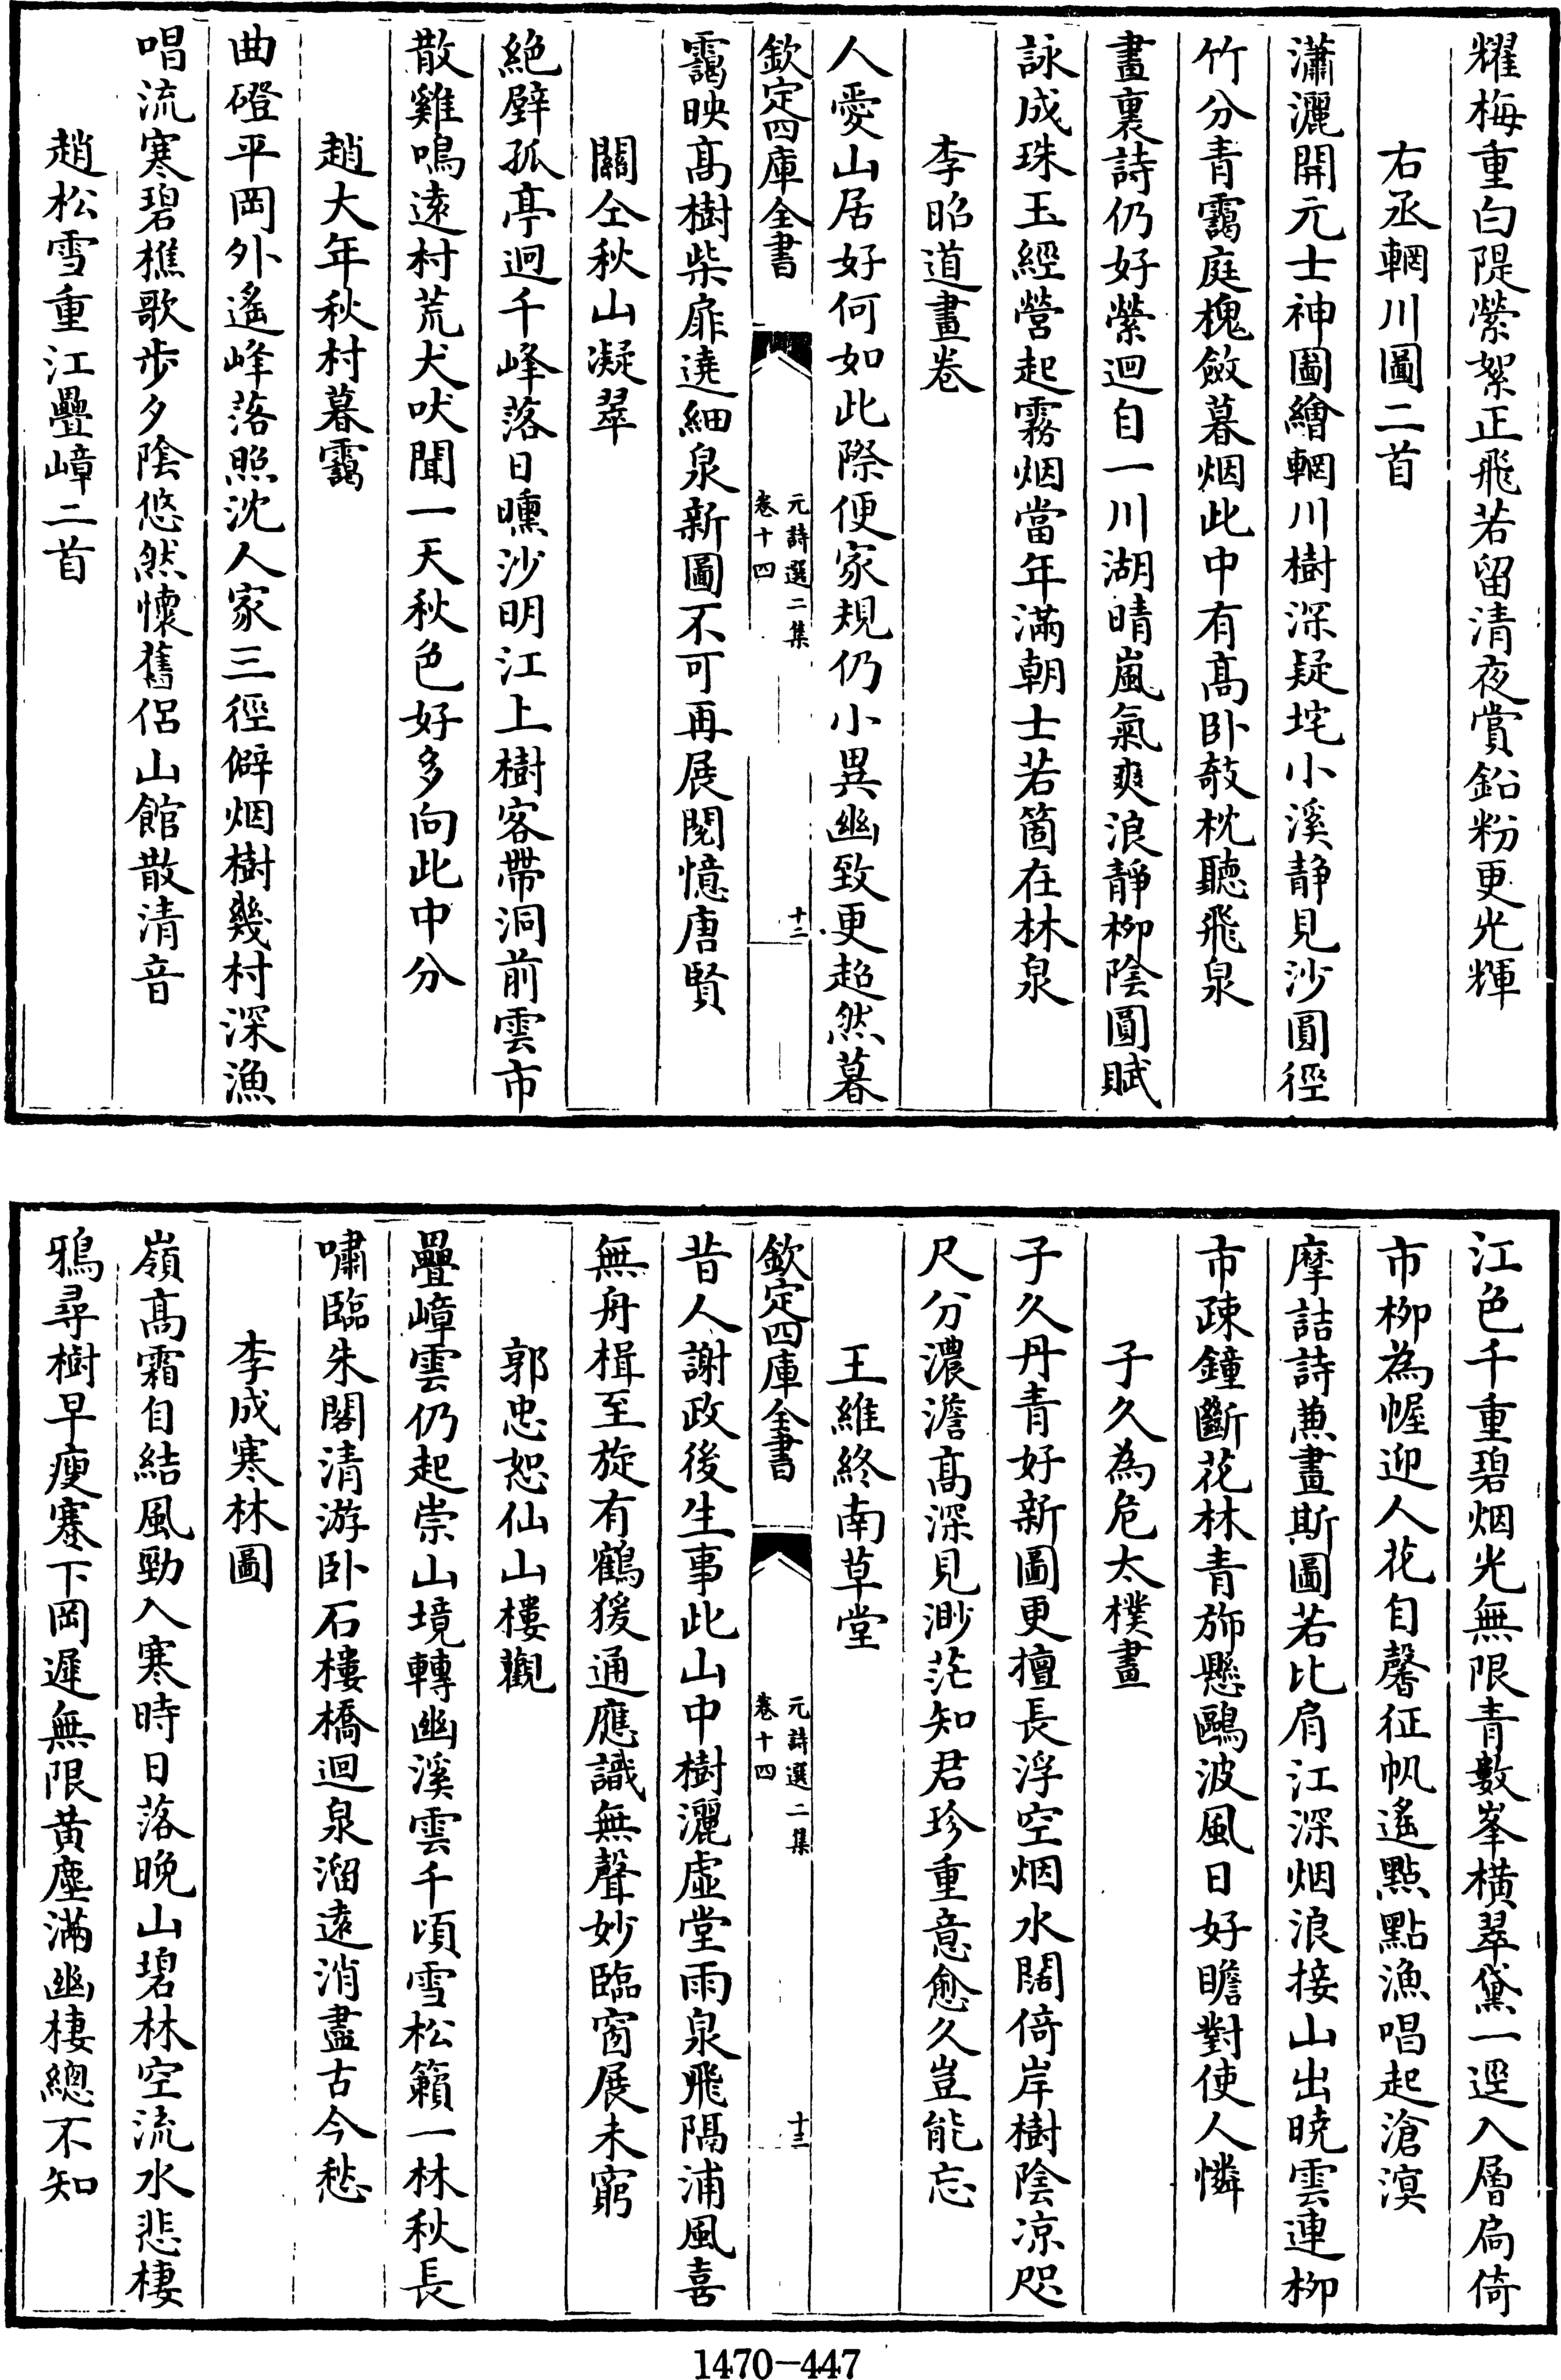 耀梅重白隄縈絮正飛若留清夜賞鉛粉更光輝
右丞輞川圖二首
瀟灑開元士神圖繪輞川樹深疑垞小溪静見沙圓徑
竹分青靄庭槐斂暮烟此中有髙卧攲枕聽飛泉
畫裏詩仍好縈迴自一川湖晴嵐氣爽浪靜柳陰圓賦
詠成珠玉經營起霧烟當年滿朝士若箇在林泉
李昭道畫卷
人愛山居好何如此際便家規仍小異幽致更超然暮
欽定四庫全書
元詩選二集
卷十四
十二
靄映髙樹柴扉遶細泉新圖不可再展閱憶唐賢
關仝秋山凝翠
絶壁孤亭迥千峰落日曛沙明江上樹客帶洞前雲市
散雞鳴遠村荒犬吠聞一天秋色好多向此中分
趙大年秋村暮靄
曲磴平岡外遙峰落照沈人家三徑僻烟樹幾村深漁
唱流寒碧樵歌歩夕陰悠然懷舊侶山館散清音
趙松雪重江疊嶂二首
江色千重碧烟光無限青數峯横翠黛一逕入層扃倚
市柳為幄迎人花自馨征帆遙點點漁唱起滄溟
摩詰詩兼畫斯圖若比肩江深烟浪接山出曉雲連柳
市疎鐘斷花林青斾懸鷗波風日好瞻對使人憐
子久為危太樸畫
子久丹青好新圖更擅長浮空烟水闊倚岸樹陰凉咫
尺分濃澹髙深見渺茫知君珍重意愈久豈能忘
王維終南草堂
欽定四庫全書
元詩選二集
卷十四
十三
昔人謝政後生事此山中樹灑虚堂雨泉飛隔浦風喜
無舟楫至旋有鶴猨通應識無聲妙臨窗展未窮
郭忠恕仙山樓觀
疊嶂雲仍起崇山境轉幽溪雲千頃雪松籟一林秋長
嘯臨朱閣清游卧石樓橋迴泉溜遠消盡古今愁
李成寒林圖
嶺髙霜自結風勁入寒時日落晚山碧林空流水悲棲
鴉尋樹早瘦蹇下岡遲無限黄塵滿幽棲總不知
1470-447